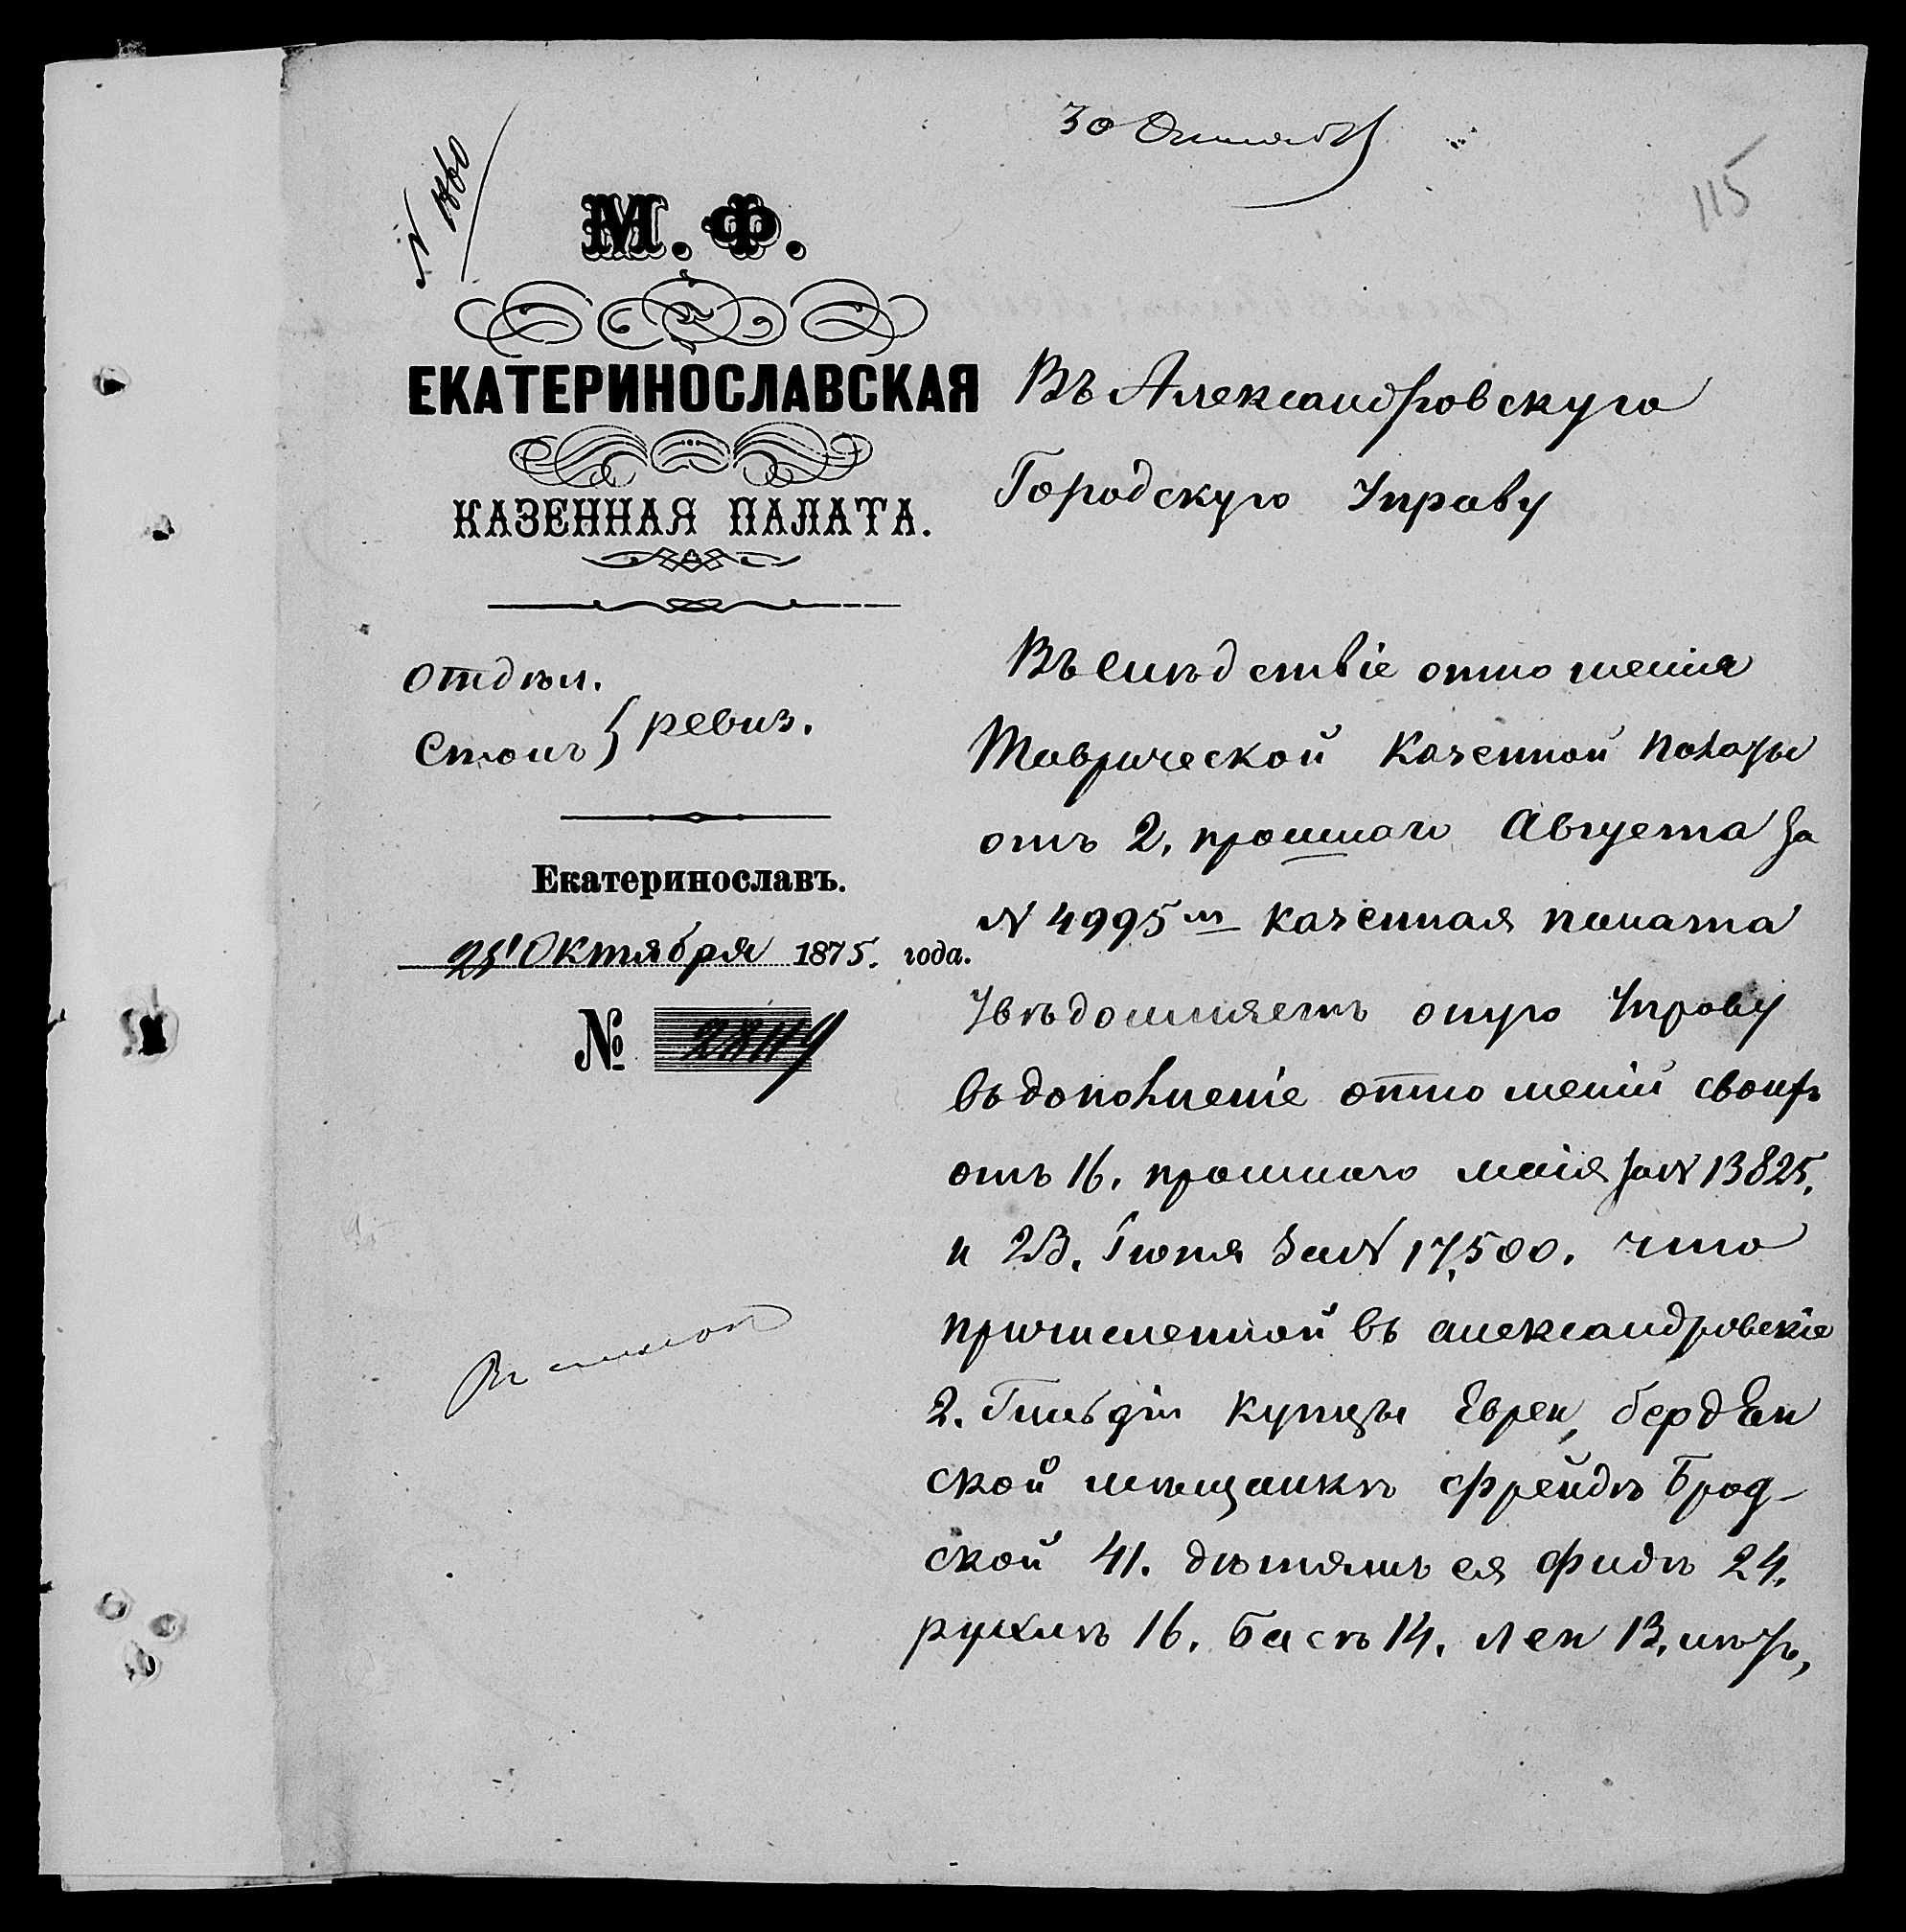 30 Октября
115
N 1860
М. Ф.
ЕКАТЕРИНОСЛАВСКАЯ
КАЗЕННАЯ ПАЛАТА.
Отдѣл.
Столъ } ревиз.
Екатеринославъ.
25 Октября 1875. года.
№ 28119
Въ Александровскую
Городскую Управу
Въслѣдствіе отношенія
Таврической Казенной Палаты
отъ 2, прошлаго Августа за
N 4995м казенная палата
Увѣдомляетъ оную Управу
въ дополненіе отношеній своихъ
отъ 16. прошлаго маія за N 13825.
и 23. Іюня за N 17,500. что
причисленной въ александровскіе
2. Гильдіи купцы Евреи, бердян
ской мѣщанкѣ Фрейдѣ Брод-
ской 41. дѣтямъ ея Фидѣ 24.
рухлѣ 16. Басѣ 14. Леи 13. лѣтъ,